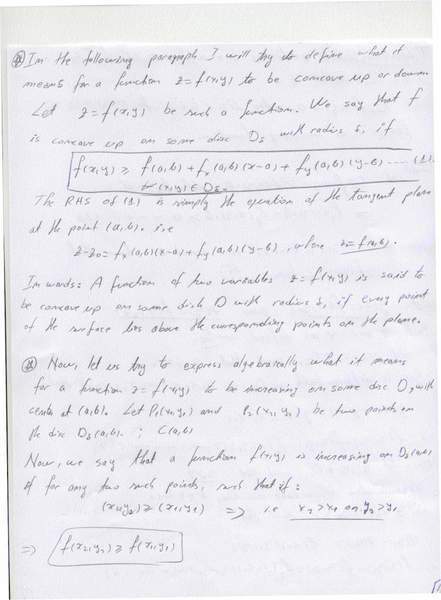 In the following paragraph I will try to define what it
means for a function z=f(x,y) to be concave up or down
Let z=f(x,y) be such a function. We say that f
is concave up on some disc Dδ with radius δ, if
f(x,y) ≥ f(a,b)+fx(a,b)(x-a)+fy(a,b)(y-b) ---- (1)
∀(x,y)∈Dδ.
The RHS of (1) is simply the equation of the tangent plane
at the point (a,b). i.e
z-z0= fx(a,b)(x-a)+fy(a,b)(y-b), where z0=f(a,b).
In words: A function of two variables z=f(x,y) is said to
be concave up on some disk D with radius δ, if every point
of the surface lies above the corresponding points on the plane.
Now, let us try to express algebraically what it means
for a function z=f(x,y) to be increasing on some disc D, with
center at (a,b). Let P1(x1,y1) and P2(x2,y2) be two points on
the disc Dδ(a,b). ; C(a,b)
Now, we say that a function f(x,y) is increasing on Dδ(a,b)
if for any two such points, such that if:
(x2,y2) ≥ (x1,y1) => i.e x2>x1 or y2>y1
=> f(x2,y2) ≥ f(x1,y1)